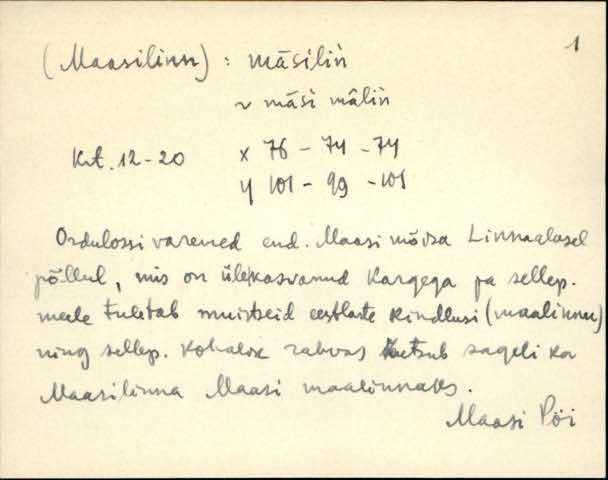 1
(Maasilinn) : māsiliǹ
~ māsi māliǹ
Krt. 12-20 x 76 - 74 - 74
y 101 - 99 - 101
Ordulossi varemed end. Maasi mõisa Linnaalusel
põllul, mis on ülekasvanud kargega ja sellep.
meele tuletab muistseid eestlaste kindlusi (maalinnu)
ning sellep. kohalik rahvas kutsub sageli ka
Maasilinna Maasi maalinnaks.
Maasi Pöi